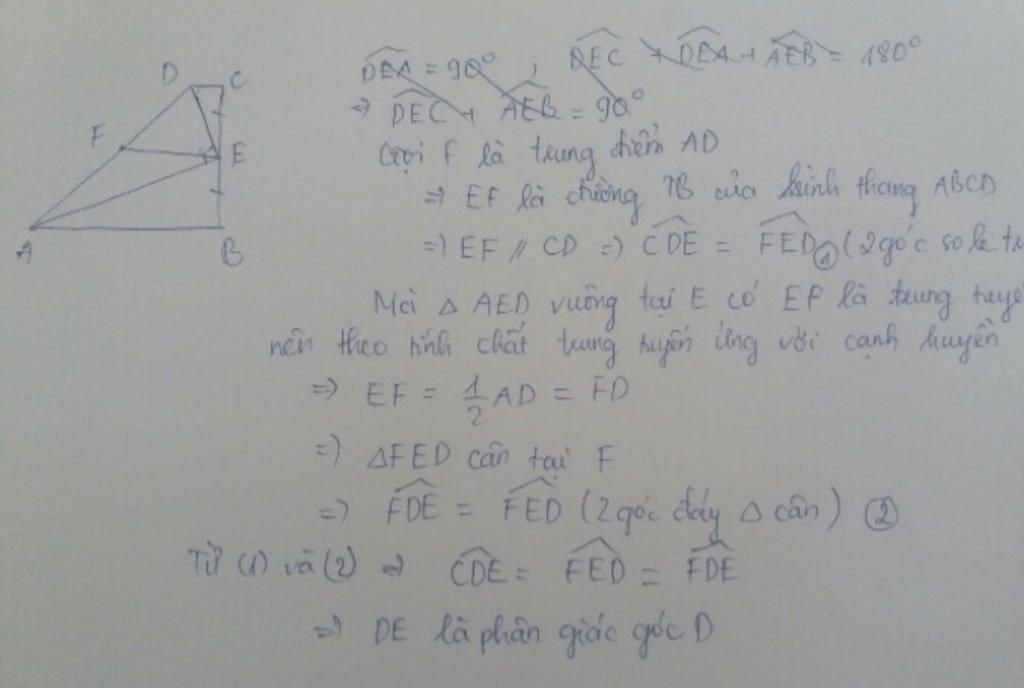 D C
F
E
A B
DEA = 90° ; DEC + DEA + AEB = 180°
⇒ DEC + AEB = 90°
Gọi F là trung điểm AD
⇒ EF là đường TB của hình thang ABCD
⇒ EF // CD ⇒ CDE = FED ① (2 góc so le
Mà △ AED vuông tại E có EF là trung
nên theo tính chất trung tuyến ứng với cạnh huyền
⇒ EF = 1/2 AD = FD
⇒ △FED cân tại F
⇒ FDE = FED (2 góc đáy △ cân) ②
Từ (1) và (2) ⇒ CDE = FED = FDE
⇒ DE là phân giác góc D